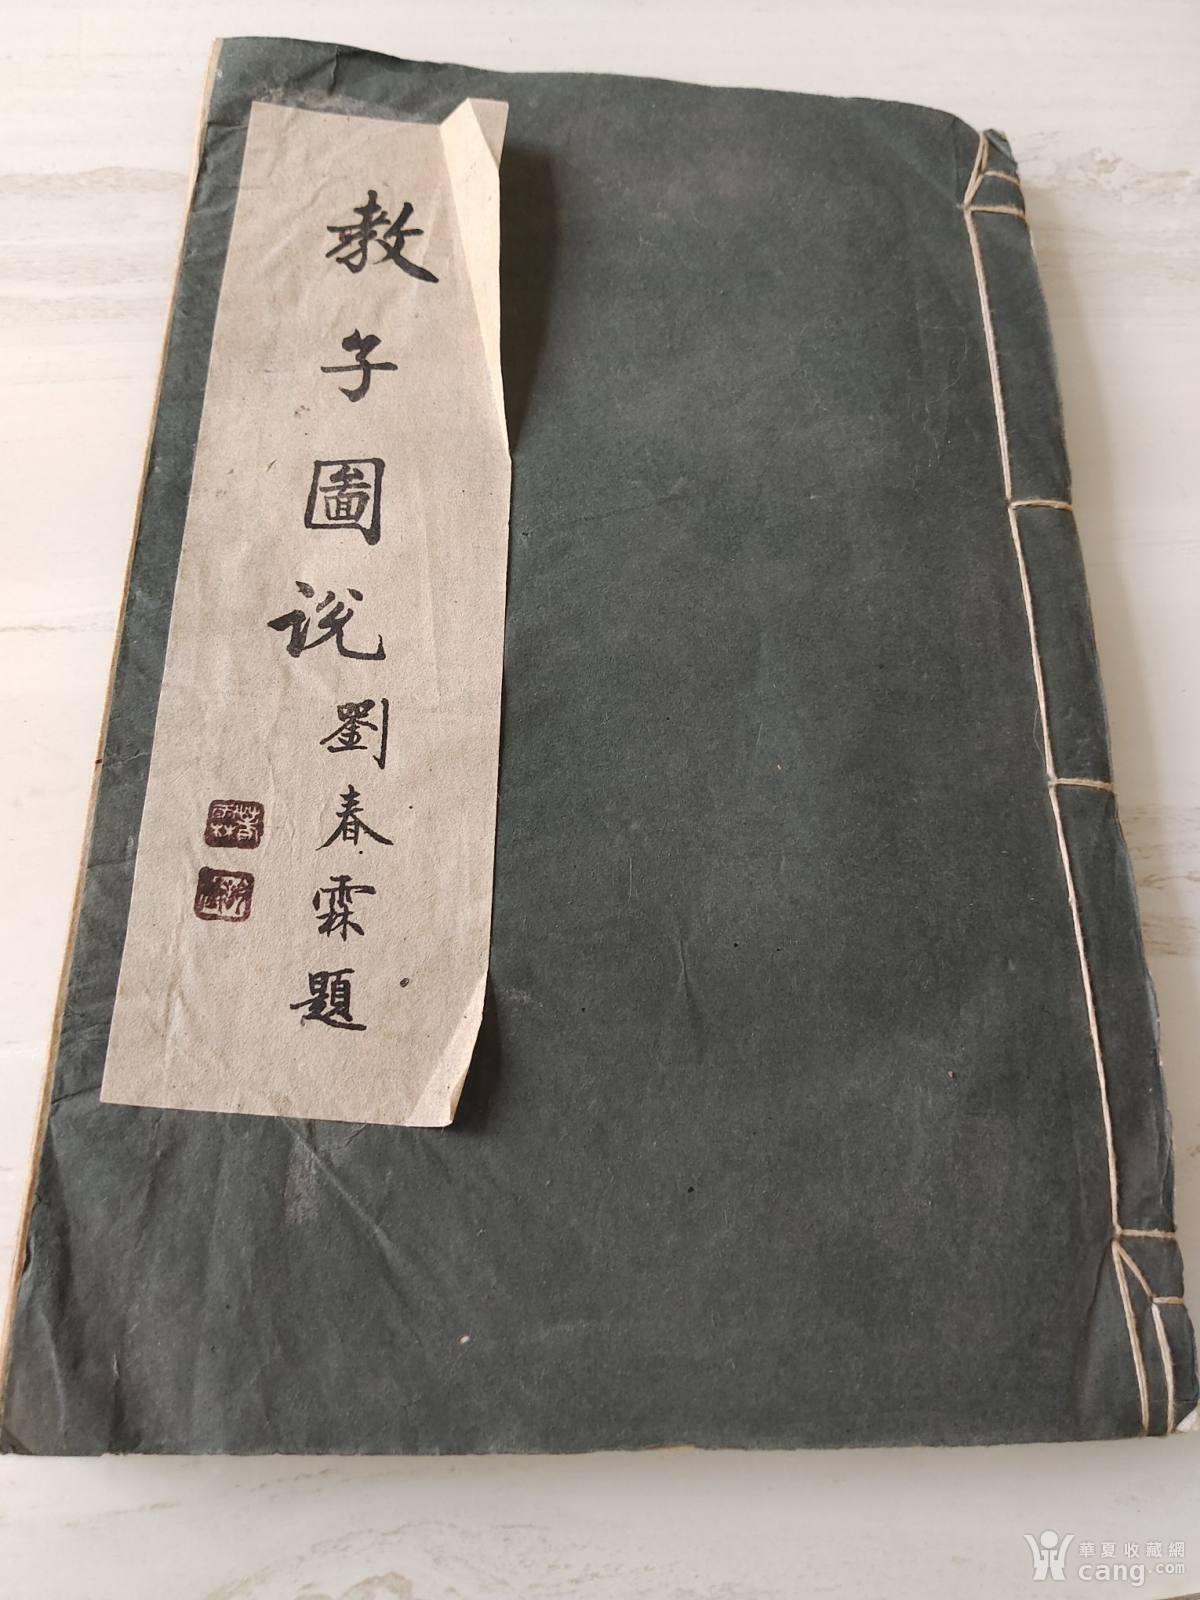 敎子圖說劉春霖題
華夏收藏網
cang.com